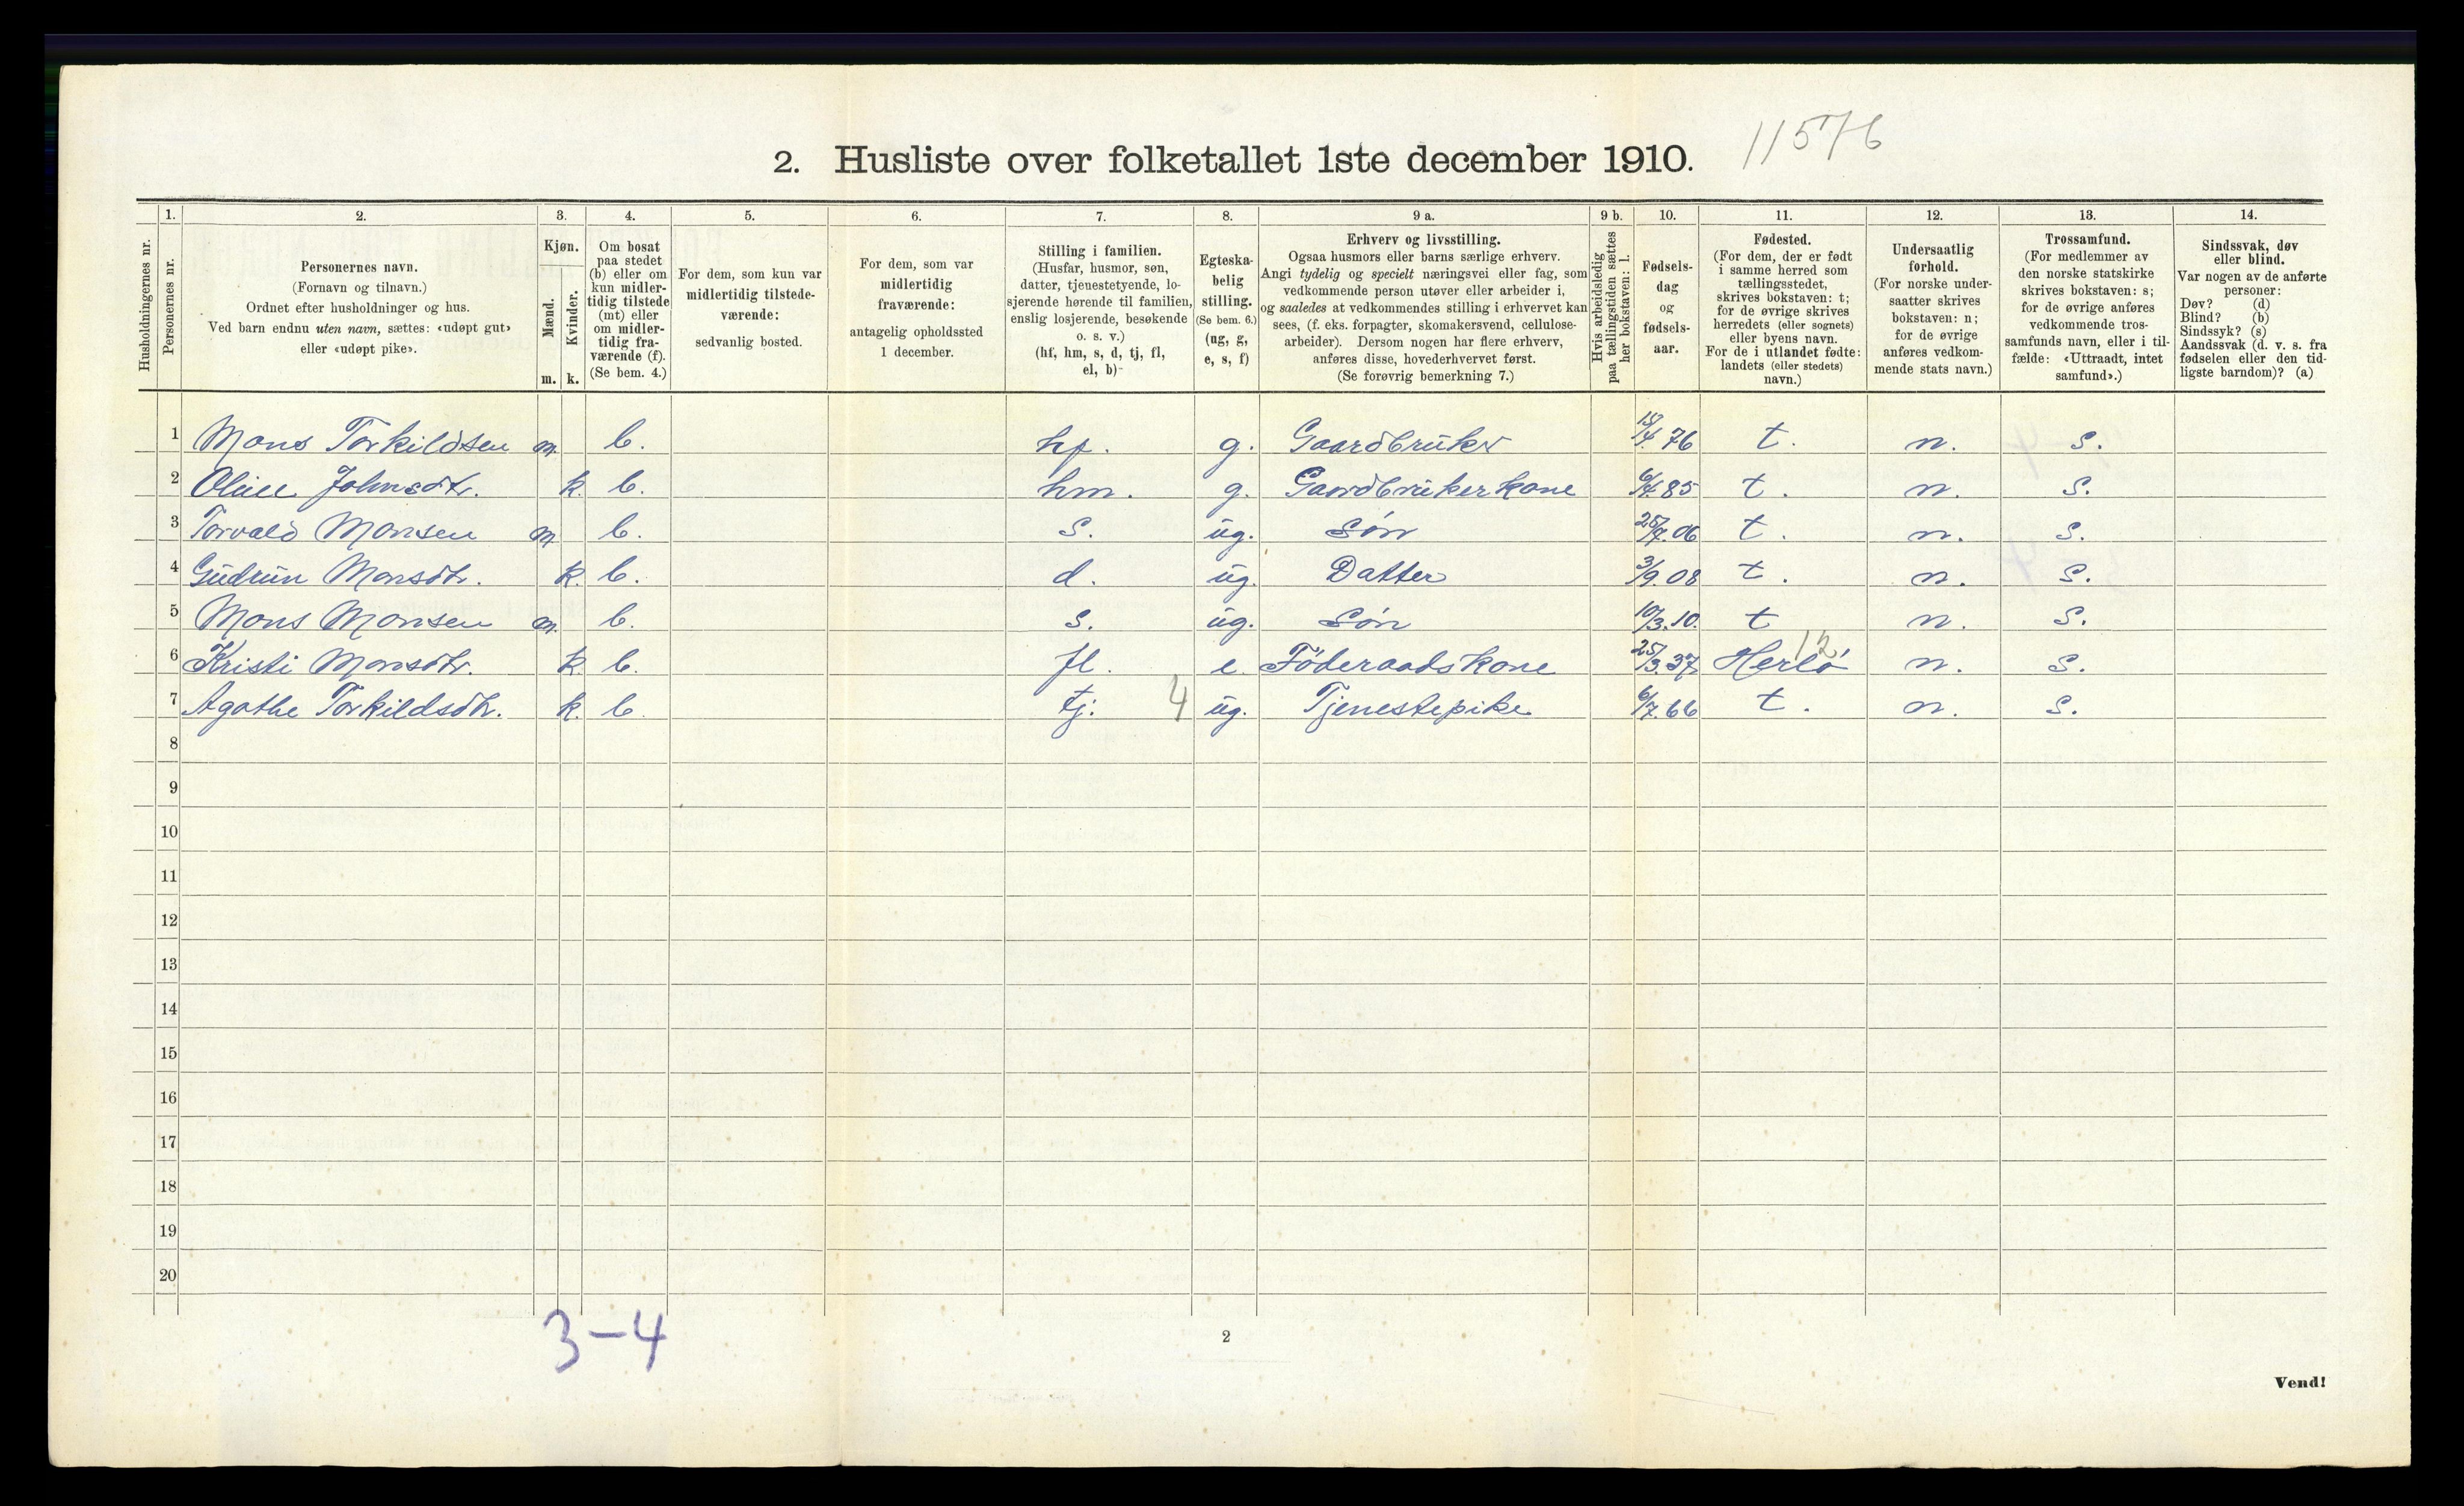 11576
2. Husliste over folketallet 1ste december 1910.
Husholdningernes nr.
1. Personernes nr.
2. Personernes navn.
(Fornavn og tilnavn.)
Ordnet efter husholdninger og hus.
Ved barn endnu uten navn, sættes: «udøpt gut»
eller «udøpt pike».
3. Kjøn.
Mænd. m.
Kvinder. k.
4. Om bosat
paa stedet
(b) eller om
kun midler-
tidig tilstede
(mt) eller
om midler-
tidig fra-
værende (f).
(Se bem. 4.)
5. For dem, som kun var
midlertidig tilstede-
værende:
sedvanlig bosted.
6. For dem, som var
midlertidig
fraværende:
antagelig opholdssted
1 december.
7. Stilling i familien.
(Husfar, husmor, søn,
datter, tjenestetyende, lo-
sjerende hørende til familien,
enslig losjerende, besøkende
o. s. v.)
(hf, hm, s, d, tj, fl,
el, b)-
8. Egteska-
belig
stilling.
(Se bem. 6.)
(ug, g,
e, s, f)
9 a. Erhverv og livsstilling.
Ogsaa husmors eller barns særlige erhverv.
Angi tydelig og specielt næringsvei eller fag, som
vedkommende person utøver eller arbeider i,
og saaledes at vedkommendes stilling i erhvervet kan
sees, (f. eks. forpagter, skomakersvend, cellulose-
arbeider). Dersom nogen har flere erhverv,
anføres disse, hovederhvervet først.
(Se forøvrig bemerkning 7.)
9 b. Hvis arbeidsledig
paa tællingstiden sættes
her bokstaven: l.
10. Fødsels-
dag
og
fødsels-
aar.
11. Fødested.
(For dem, der er født
i samme herred som
tællingsstedet,
skrives bokstaven: t;
for de øvrige skrives
herredets (eller sognets)
eller byens navn.
For de i utlandet fødte:
landets (eller stedets)
navn.)
12. Undersaatlig
forhold.
(For norske under-
saatter skrives
bokstaven: n;
for de øvrige
anføres vedkom-
mende stats navn.)
13. Trossamfund.
(For medlemmer av
den norske statskirke
skrives bokstaven: s;
for de øvrige anføres
vedkommende tros-
samfunds navn, eller i til-
fælde: «Uttraadt, intet
samfund».)
14. Sindssvak, døv
eller blind.
Var nogen av de anførte
personer:
Døv? (d)
Blind? (b)
Sindssyk? (s)
Aandssvak (d. v. s. fra
fødselen eller den tid-
ligste barndom)? (a)
1 Mons Torkildsen m. b. hf. g. Gaardbruker 15/4. 76 t. n. s.
2 Johnsdtr. k. b. hm. g. Gaardbrukerkone 6/4. 85 t. n. s.
3 Torvald Monsen m b. s. ug. Søn 25/7. 06 t. n. s.
4 Gudrun Monsdtr. k. b. d. ug. Datter 3/9. 08 t. n. s.
5 Mons Monsen m. b. s. ug. Søn 10/3. 10. t n. s.
6 Kristi Monsdtr. k. b. fl. e. Föderaadskone 25/3. 37 Herlö 12 n. s.
7 Agathe Torkildsdtr. k. b tj. 4 ug. Tjenestepike 6/7. 66 t. n. s.
8
9
10
11
12
13
14
15
16
17
18
19
20
3-4
2
Vend!